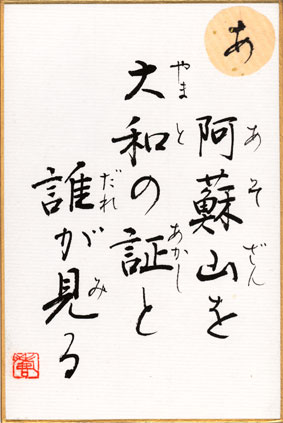 あ
阿蘇山を
あそざん
大和の証と
やまと
あかし
誰が見る
だれ
み